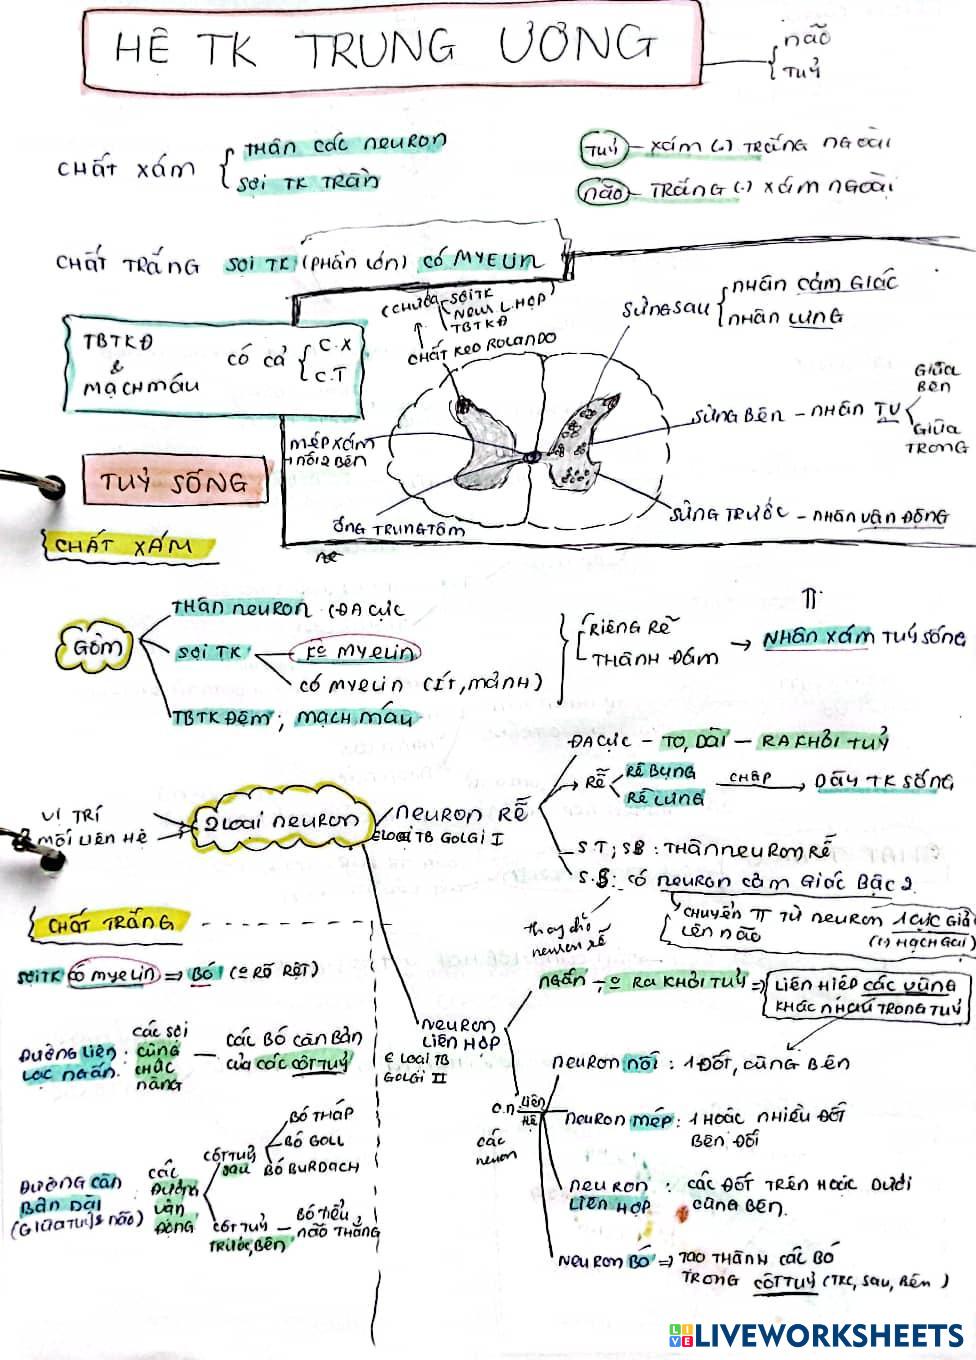 HỆ TK TRUNG ƯƠNG
não
TUỶ
CHẤT XÁM
THÂN CÁC NEURON
SỢI TK TRẦN
TUỶ - XÁM (.) TRẮNG NGOÀI
não - TRẮNG (.) XÁM NGOÀI
CHẤT TRẮNG SỢI TK (PHẦN LỚN) CÓ MYELIN
TBTKĐ
&
MẠCH MÁU
CÓ CẢ
C.X
C.T
(CHỨA
SỢI TK
NEU L.HỢP)
TBTKĐ
CHẤT KEO ROLANDO
SỪNG SAU
NHÂN CẢM GIÁC
NHÂN LƯNG
SỪNG BÊN - NHÂN TV
GIỮA BÊN
GIỮA TRONG
MÉP XÁM
→ NỐI 2 BÊN
ỐNG TRUNG TÂM
SỪNG TRƯỚC - NHÂN VẬN ĐỘNG
TUỶ SỐNG
CHẤT XÁM
GỒM
THÂN NEURON (ĐA CỰC
SỢI TK
K° MYELIN
CÓ MYELIN (ÍT, MẢNH)
TBTK ĐỆM ; MẠCH MÁU
RIÊNG RẼ
THÀNH ĐÁM
→ NHÂN XÁM TUỶ SỐNG
VỊ TRÍ
MỐI LIÊN HỆ
2 LOẠI NEURON
NEURON RỄ
€ LOẠI TB GOLGI I
ĐA CỰC - TO, DÀI - RA KHỎI TUỶ
RỄ
RỄ BỤNG
RỄ LƯNG
CHẬP
→ DÂY TK SỐNG
S.T ; S.B : THÂN NEURON RỄ
S.S : CÓ NEURON CẢM GIÁC BẬC 2
thay cho
neuron rễ
CHUYỂN TT TỪ NEURON 1 CỰC GIẢ
LÊN NÃO
(.) HẠCH GAI
CHẤT TRẮNG
SỢI TK CÓ MYELIN ⇒ BÓ (° RÕ RỆT)
ĐƯỜNG LIÊN LẠC NGẮN :
CÁC SỢI CÙNG CHỨC NĂNG
CÁC BÓ CĂN BẢN
CỦA CÁC CỘT TUỶ
ĐƯỜNG CĂN BẢN DÀI
(GIỮA TUỶ & NÃO)
CÁC ĐƯỜNG VẬN ĐỘNG
CỘT TUỶ SAU
BÓ THÁP
BÓ GOLL
BÓ BURDACH
CỘT TUỶ TRƯỚC, BÊN
BÓ TIỂU NÃO THẲNG
NEURON LIÊN HỢP
€ LOẠI TB GOLGI II
NGẮN, ° RA KHỎI TUỶ ⇒
LIÊN HIỆP CÁC VÙNG
KHÁC NHAU TRONG TUỶ
C.N: LIÊN HỆ
các neuron
NEURON NỐI : 1 ĐỐT, CÙNG BÊN
NEURON MÉP : 1 HOẶC NHIỀU ĐỐT
BÊN ĐỐI
NEURON LIÊN HỢP : CÁC ĐỐT TRÊN HOẶC DƯỚI
CÙNG BÊN.
NEURON BÓ ⇒ TẠO THÀNH CÁC BÓ
TRONG CỘT TUỶ (TRC, SAU, BÊN)
LIVEWORKSHEETS